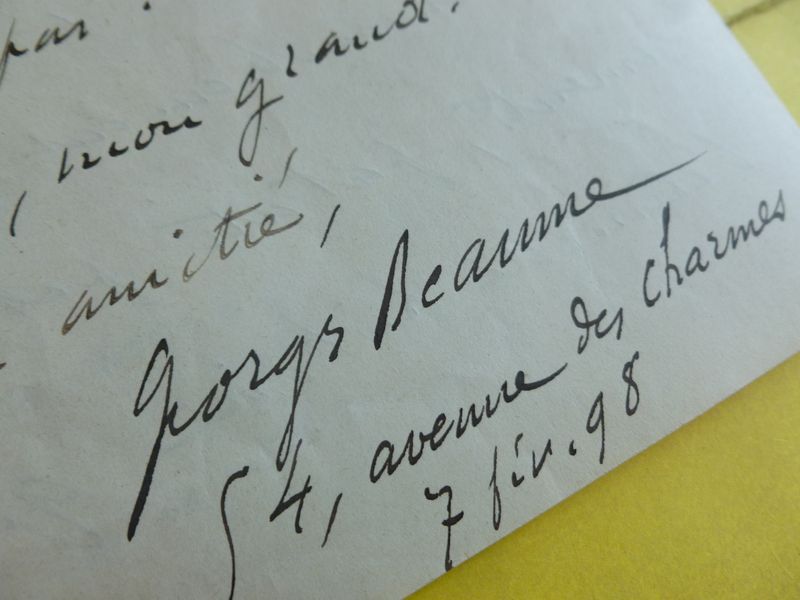 par
, mon grand,
amitié,
Georges Beaume
54, avenue des Charmes
7 fév. 98